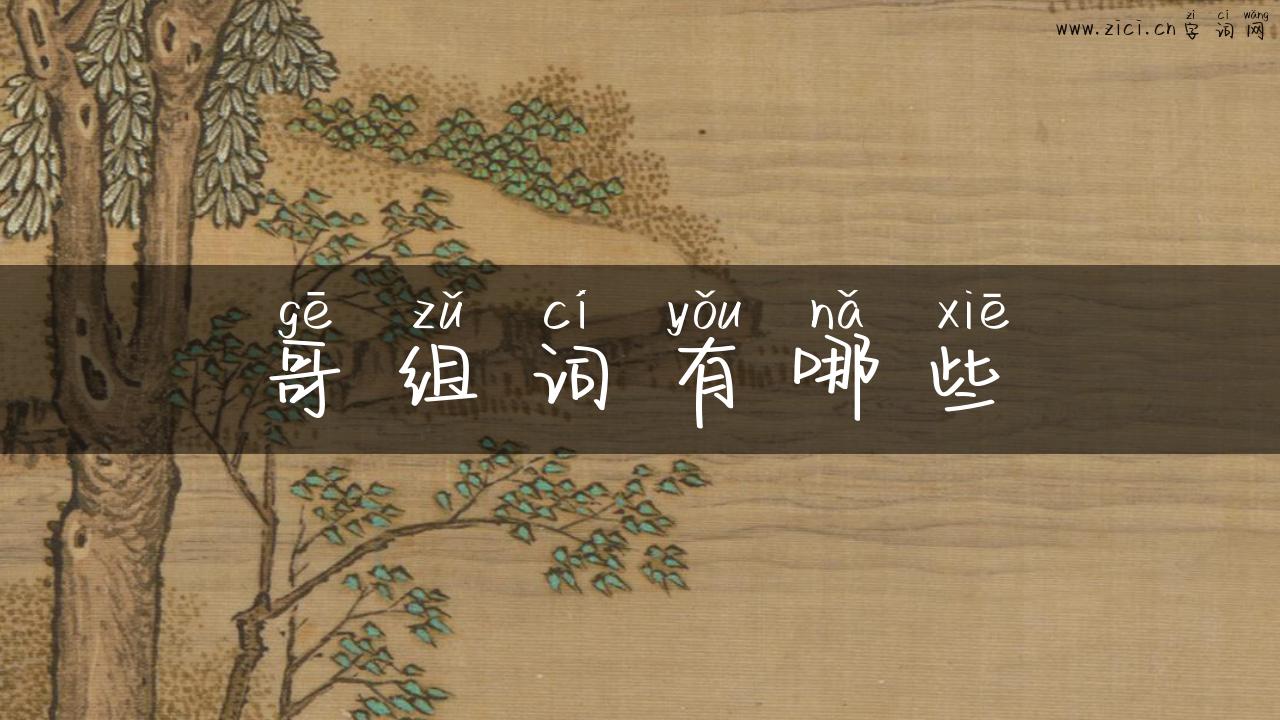 zì cí wǎng
www.zici.cn 字词网
gē zǔ cí yǒu nǎ xiē
哥组词有哪些